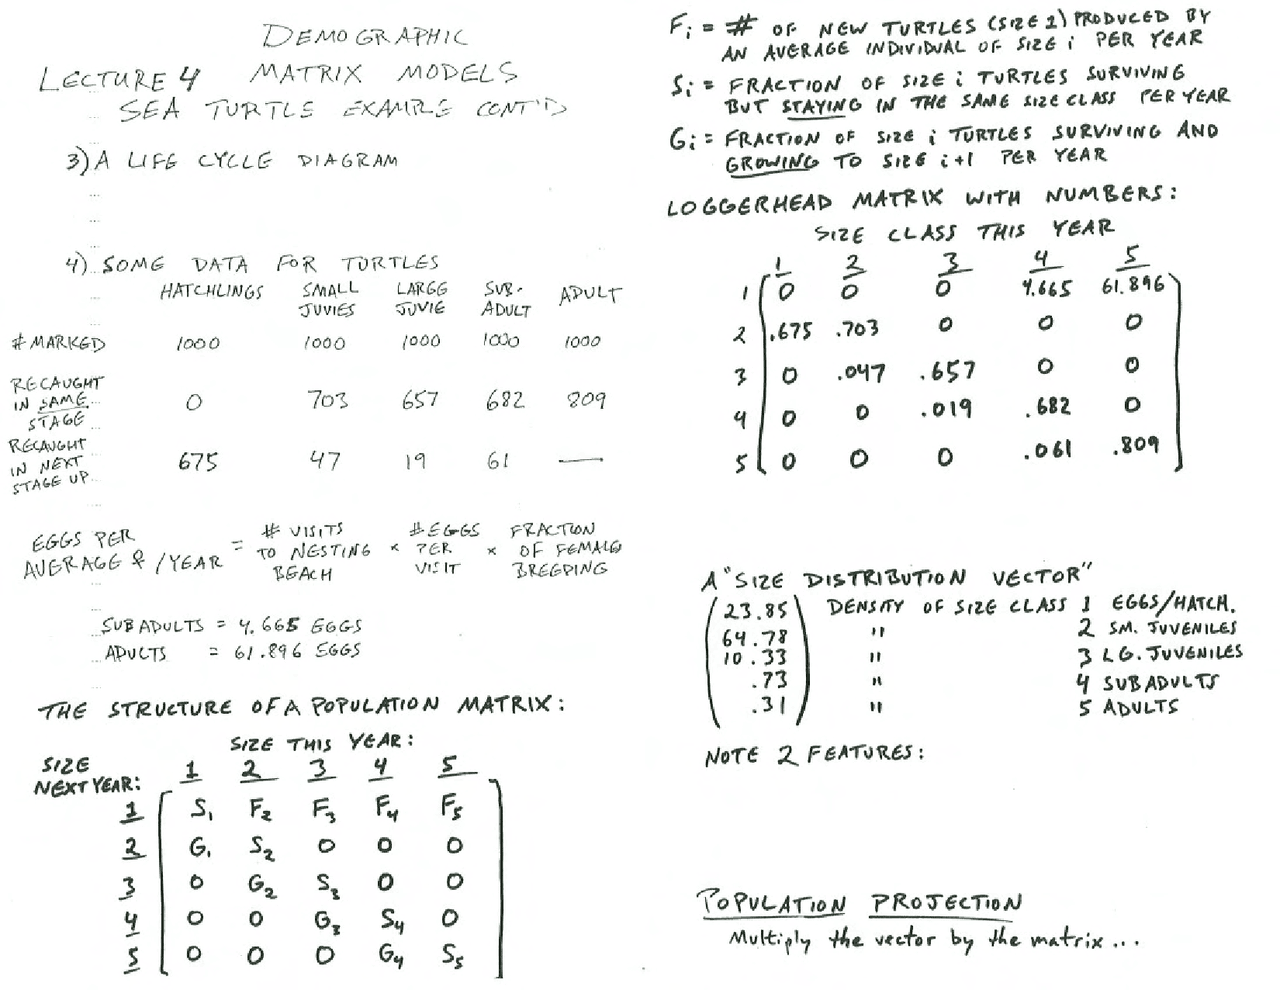 DEMOGRAPHIC
LECTURE 4 MATRIX MODELS
SEA TURTLE EXAMPLE CONT'D
3) A LIFE CYCLE DIAGRAM
4) SOME DATA FOR TURTLES
HATCHLINGS SMALL JUVIES LARGE JUVIE SUB-ADULT ADULT
# MARKED 1000 1000 1000 1000 1000
RECAUGHT
IN SAME 0 703 657 682 809
STAGE
RECAUGHT
IN NEXT 675 47 19 61 —
STAGE UP
EGGS PER AVERAGE ♀ /YEAR = # VISITS TO NESTING BEACH × # EGGS PER VISIT × FRACTION OF FEMALES BREEDING
SUBADULTS = 4.665 EGGS
ADULTS = 61.896 EGGS
THE STRUCTURE OF A POPULATION MATRIX:
SIZE THIS YEAR:
SIZE
NEXT YEAR: 1 2 3 4 5
1 S₁ F₂ F₃ F₄ F₅
2 G₁ S₂ 0 0 0
3 0 G₂ S₃ 0 0
4 0 0 G₃ S₄ 0
5 0 0 0 G₄ S₅
Fi = # OF NEW TURTLES (SIZE 1) PRODUCED BY
AN AVERAGE INDIVIDUAL OF SIZE i PER YEAR
Si = FRACTION OF SIZE i TURTLES SURVIVING
BUT STAYING IN THE SAME SIZE CLASS PER YEAR
Gi = FRACTION OF SIZE i TURTLES SURVIVING AND
GROWING TO SIZE i+1 PER YEAR
LOGGERHEAD MATRIX WITH NUMBERS:
SIZE CLASS THIS YEAR
1 2 3 4 5
1 0 0 0 4.665 61.896
2 .675 .703 0 0 0
3 0 .047 .657 0 0
4 0 0 .019 .682 0
5 0 0 0 .061 .809
A "SIZE DISTRIBUTION VECTOR"
23.85 DENSITY OF SIZE CLASS 1 EGGS/HATCH.
64.78 " 2 SM. JUVENILES
10.33 " 3 LG. JUVENILES
.73 " 4 SUBADULTS
.31 " 5 ADULTS
NOTE 2 FEATURES:
POPULATION PROJECTION
Multiply the vector by the matrix...